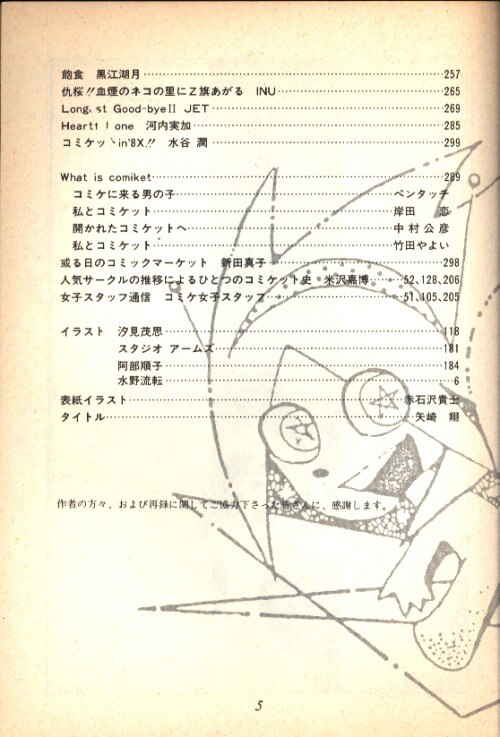 飽食　黒江湖月……257
仇桜!!血煙のネコの里にZ旗あがる　INU……265
Good-bye II　JET……269
one　河内実加……285
in'8X!!　水谷 潤……299
What is comiket……289
コミケに来る男の子……ペンタッチ
私とコミケット……岸田
開かれたコミケットへ……中村公彦
私とコミケット……竹田やよい
或る日のコミックマーケット　新田真子……298
人気サークルの推移によるひとつのコミケット史　米沢嘉博……52,128,206
女子スタッフ通信　コミケ女子スタッフ……51,105,205
イラスト　汐見茂思……118
スタジオ アームズ……181
阿部順子……184
水野流転……6
表紙イラスト……赤石沢貴士
タイトル……矢崎 翔
作者の方々、および再録に関してご協力下さった皆さんに、感謝します。
5